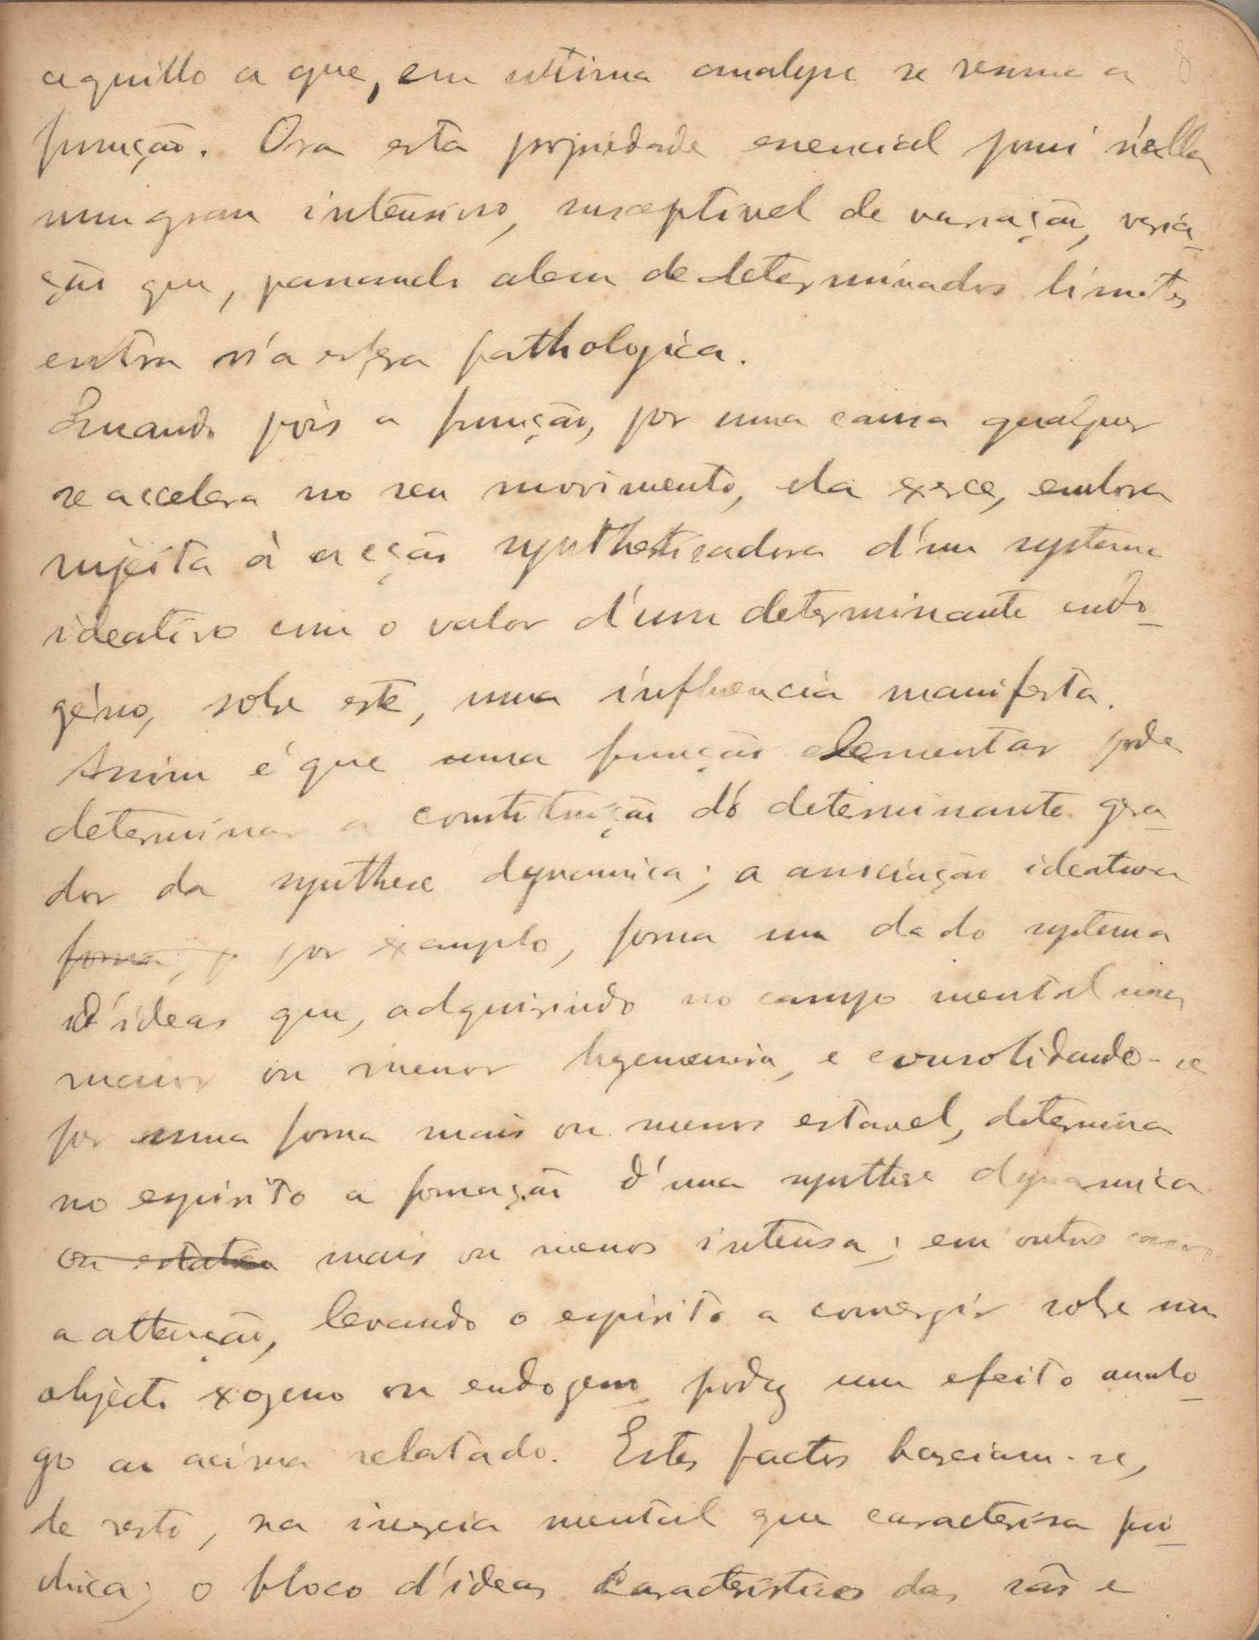 aquillo a que, em ultima analyse se resume a
funcção. Ora esta propriedade essencial possui n'ella
um grau intensivo, susceptivel de variação, varia-
ção que, passando alem de determinados limites
entra n'a esfera pathologica.
Quando pois a funcção, por uma causa qualquer
se accelera no seu movimento, ela exerce, embora
sujeita à acção synthetisadora d'um systema
ideativo com o valor d'um determinante endo-
géno, sobre este, uma influencia manifesta.
Assim é que uma funcção elementar pode
determinar a constituição do determinante gera-
dor da synthese dynamica; a associação ideativa
forma, por exemplo, forma um dado systema
d'ideas que, adquirindo no campo mental uma
maior ou menor hegemonia, e consolidando-se
por uma forma mais ou menos estavel, determina
no espirito a formação d'uma synthese dynamica
ou estatica mais ou menos intensa; em outros casos
a attenção, levando o espirito a convergir sobre um
objecto exogeno ou endogeno produz um efeito analo-
go ao acima relatado. Estes factos baseiam-se,
de resto, na inercia mental que caracterisa psi-
chica; o bloco d'ideas caracteristicos das sãs e